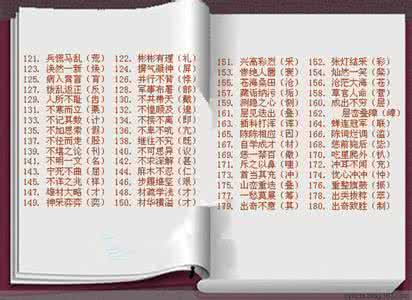 121. 兵慌马乱（荒） 122. 彬彬有理（礼）
123. 决然一新（焕） 124. 摒气凝神（屏）
126. 并行不背（悖）
127. 拨乱返正（反） 128. 军事布署（部）
129. 人所不耻（齿） 130. 不共带天（戴）
131. 不寒而立（栗） 132. 不惶顾及（遑）
133. 不记其数（计） 134. 不接不离（即）
135. 不加思索（假） 136. 不卑不吭（亢）
137. 不径而走（胫） 138. 继往不究（既）
139. 不堪之论（刊） 140. 不可思异（议）
141. 不明一文（名） 142. 不求深解（甚）
143. 宁死不曲（屈） 144. 麻木不忍（仁）
145. 不详之兆（祥） 146. 步履维坚（艰）
147. 雄材大略（才） 148. 材疏学浅（才）
149. 神采弈弈（奕） 150. 材华横溢（才）
151. 兴高彩烈（采） 152. 张灯结采（彩）
153. 惨绝人圜（寰） 154. 灿然一笑（粲）
155. 苍海桑田（沧） 156. 沧茫大海（苍）
157. 藏诟纳污（垢） 158. 草官人命（菅）
159. 测隐之心（恻） 160. 成出不穷（层）
161. 层见迭出（叠） 162. 层峦叠障（嶂）
163. 插科打浑（诨） 164. 蝉连冠军（联）
165. 陈陈相应（因） 166. 陈词烂调（滥）
167. 自学成材（才） 168. 惩前 后（毖）
169. 惩一禁百（儆） 170. 吃里爬外（扒）
171. 斥之以鼻（嗤） 172. 冲耳不闻（充）
173. 首当其充（冲） 174. 忧心冲冲（忡）
175. 山峦重迭（叠） 176. 重整旗
177. 一愁莫展（筹） 178. 出类拔粹（萃）
179. 出奇不意（其） 180. 出奇致胜（制）